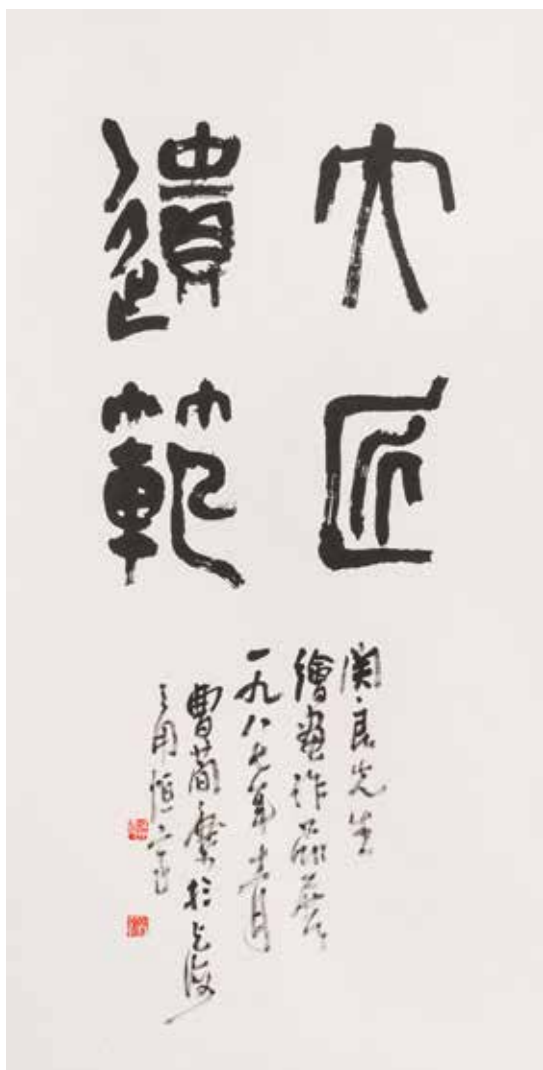 大匠
遺範
関良先生
繪畫作品展
一九八七年十一月
曹簡樓於上海
之用恒室